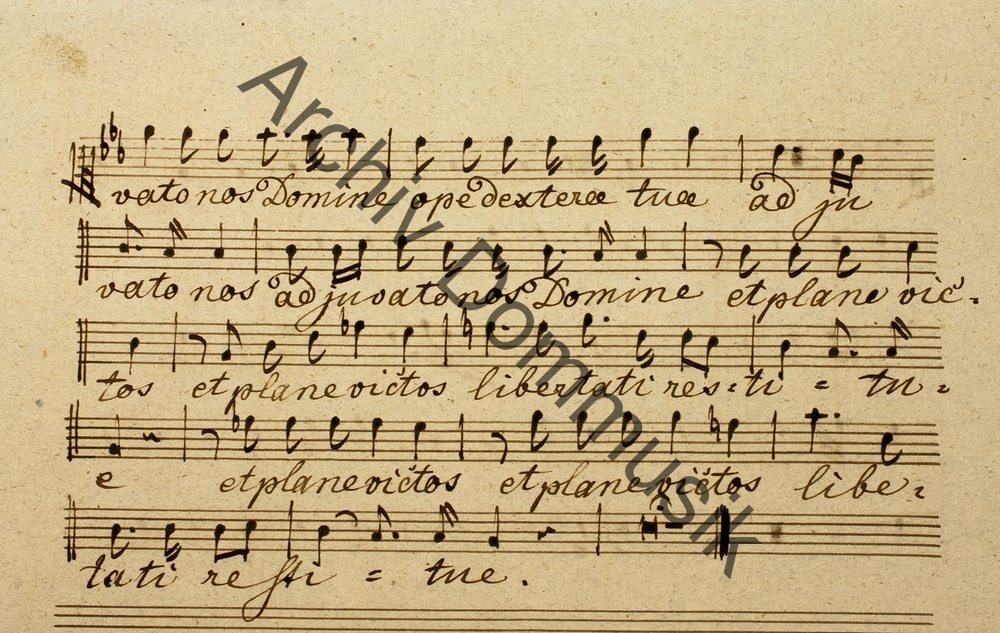 vato nos Domine ope dexteræ tuæ ad ju
vato nos adjuvato nos Domine et plane vic-
tos et plane victos libertati res-ti = tu-
e et plane victos et plane victos libe-
tati resti = tue.
Archiv Dommusik